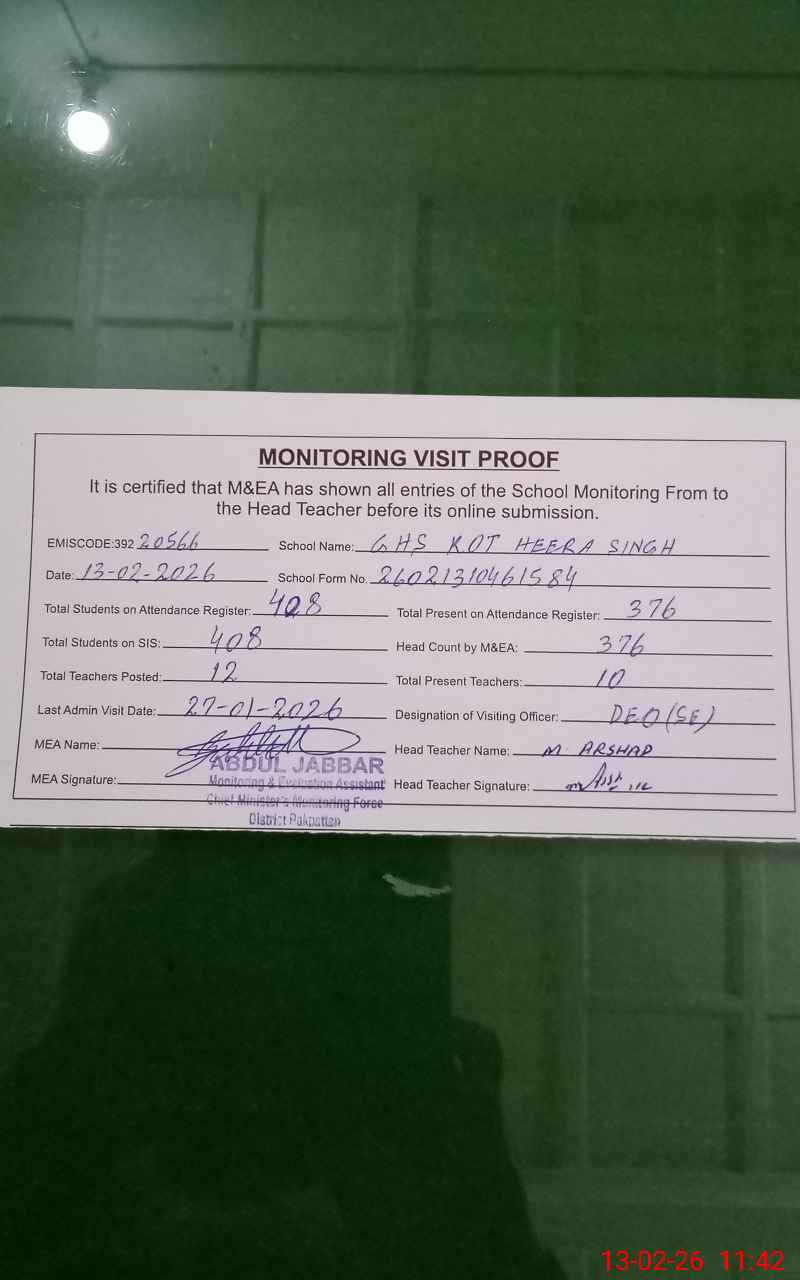 MONITORING VISIT PROOF
It is certified that M&EA has shown all entries of the School Monitoring From to
the Head Teacher before its online submission.
EMISCODE:392 20566 School Name: GHS KOT HEERA SINGH
Date: 13-02-2026 School Form No. 26021310461584
Total Students on Attendance Register: 408 Total Present on Attendance Register: 376
Total Students on SIS: 408 Head Count by M&EA: 376
Total Teachers Posted: 12 Total Present Teachers: 10
Last Admin Visit Date: 27-01-2026 Designation of Visiting Officer: DEO(SE)
MEA Name: Head Teacher Name: M ARSHAD
ABDUL JABBAR
MEA Signature: Monitoring & Evaluation Assistant Head Teacher Signature:
Chief Minister's Monitoring Force
District Pakpattan
13-02-26 11:42